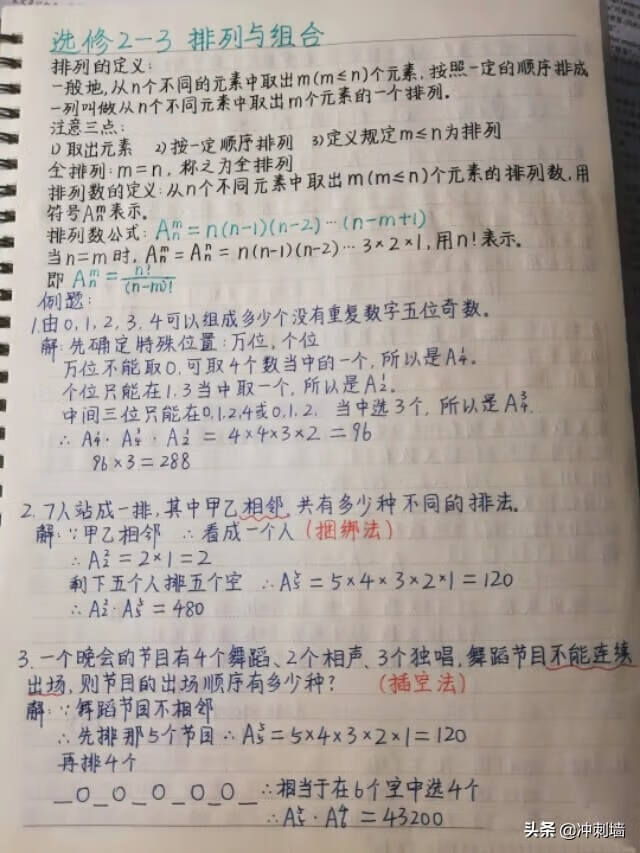 选修2-3 排列与组合
排列的定义:
一般地,从n个不同的元素中取出m(m≤n)个元素,按照一定的顺序排成
一列叫做从n个不同元素中取出m个元素的一个排列。
注意三点:
1)取出元素 2)按一定顺序排列 3)定义规定m≤n为排列
全排列:m=n,称之为全排列
排列数的定义:从n个不同元素中取出m(m≤n)个元素的排列数,用
符号Aₙᵐ表示。
排列数公式:Aₙᵐ=n(n-1)(n-2)…(n-m+1)
当n=m时,Aₙᵐ=Aₙⁿ=n(n-1)(n-2)…3×2×1,用n!表示。
即 Aₙᵐ=n!/(n-m)!
例题:
1.由0,1,2,3,4可以组成多少个没有重复数字五位奇数。
解:先确定特殊位置:万位,个位
万位不能取0,可取4个数当中的一个,所以是A₄¹。
个位只能在1.3当中取一个,所以是A₂¹。
中间三位只能在0,1,2,4或0,1,2. 当中选3个,所以是A₄³.
∴A₄¹·A₄³·A₂¹=4×4×3×2=96
96×3=288
2.7人站成一排,其中甲乙相邻,共有多少种不同的排法。
解:∵甲乙相邻 ∴看成一个人(捆绑法)
∴A₂²=2×1=2
剩下五个人排五个空 ∴A₅⁵=5×4×3×2×1=120
∴A₂²·A₅⁵=480
3.一个晚会的节目有4个舞蹈、2个相声、3个独唱,舞蹈节目不能连续
出场,则节目的出场顺序有多少种? (插空法)
解:∵舞蹈节目不相邻
∴先排那5个节目∴A₅⁵=5×4×3×2×1=120
再排4个
_O_O_O_O_O_∴相当于在6个空中选4个
∴A₅⁵·A₆⁴=43200
头条 @冲刺墙